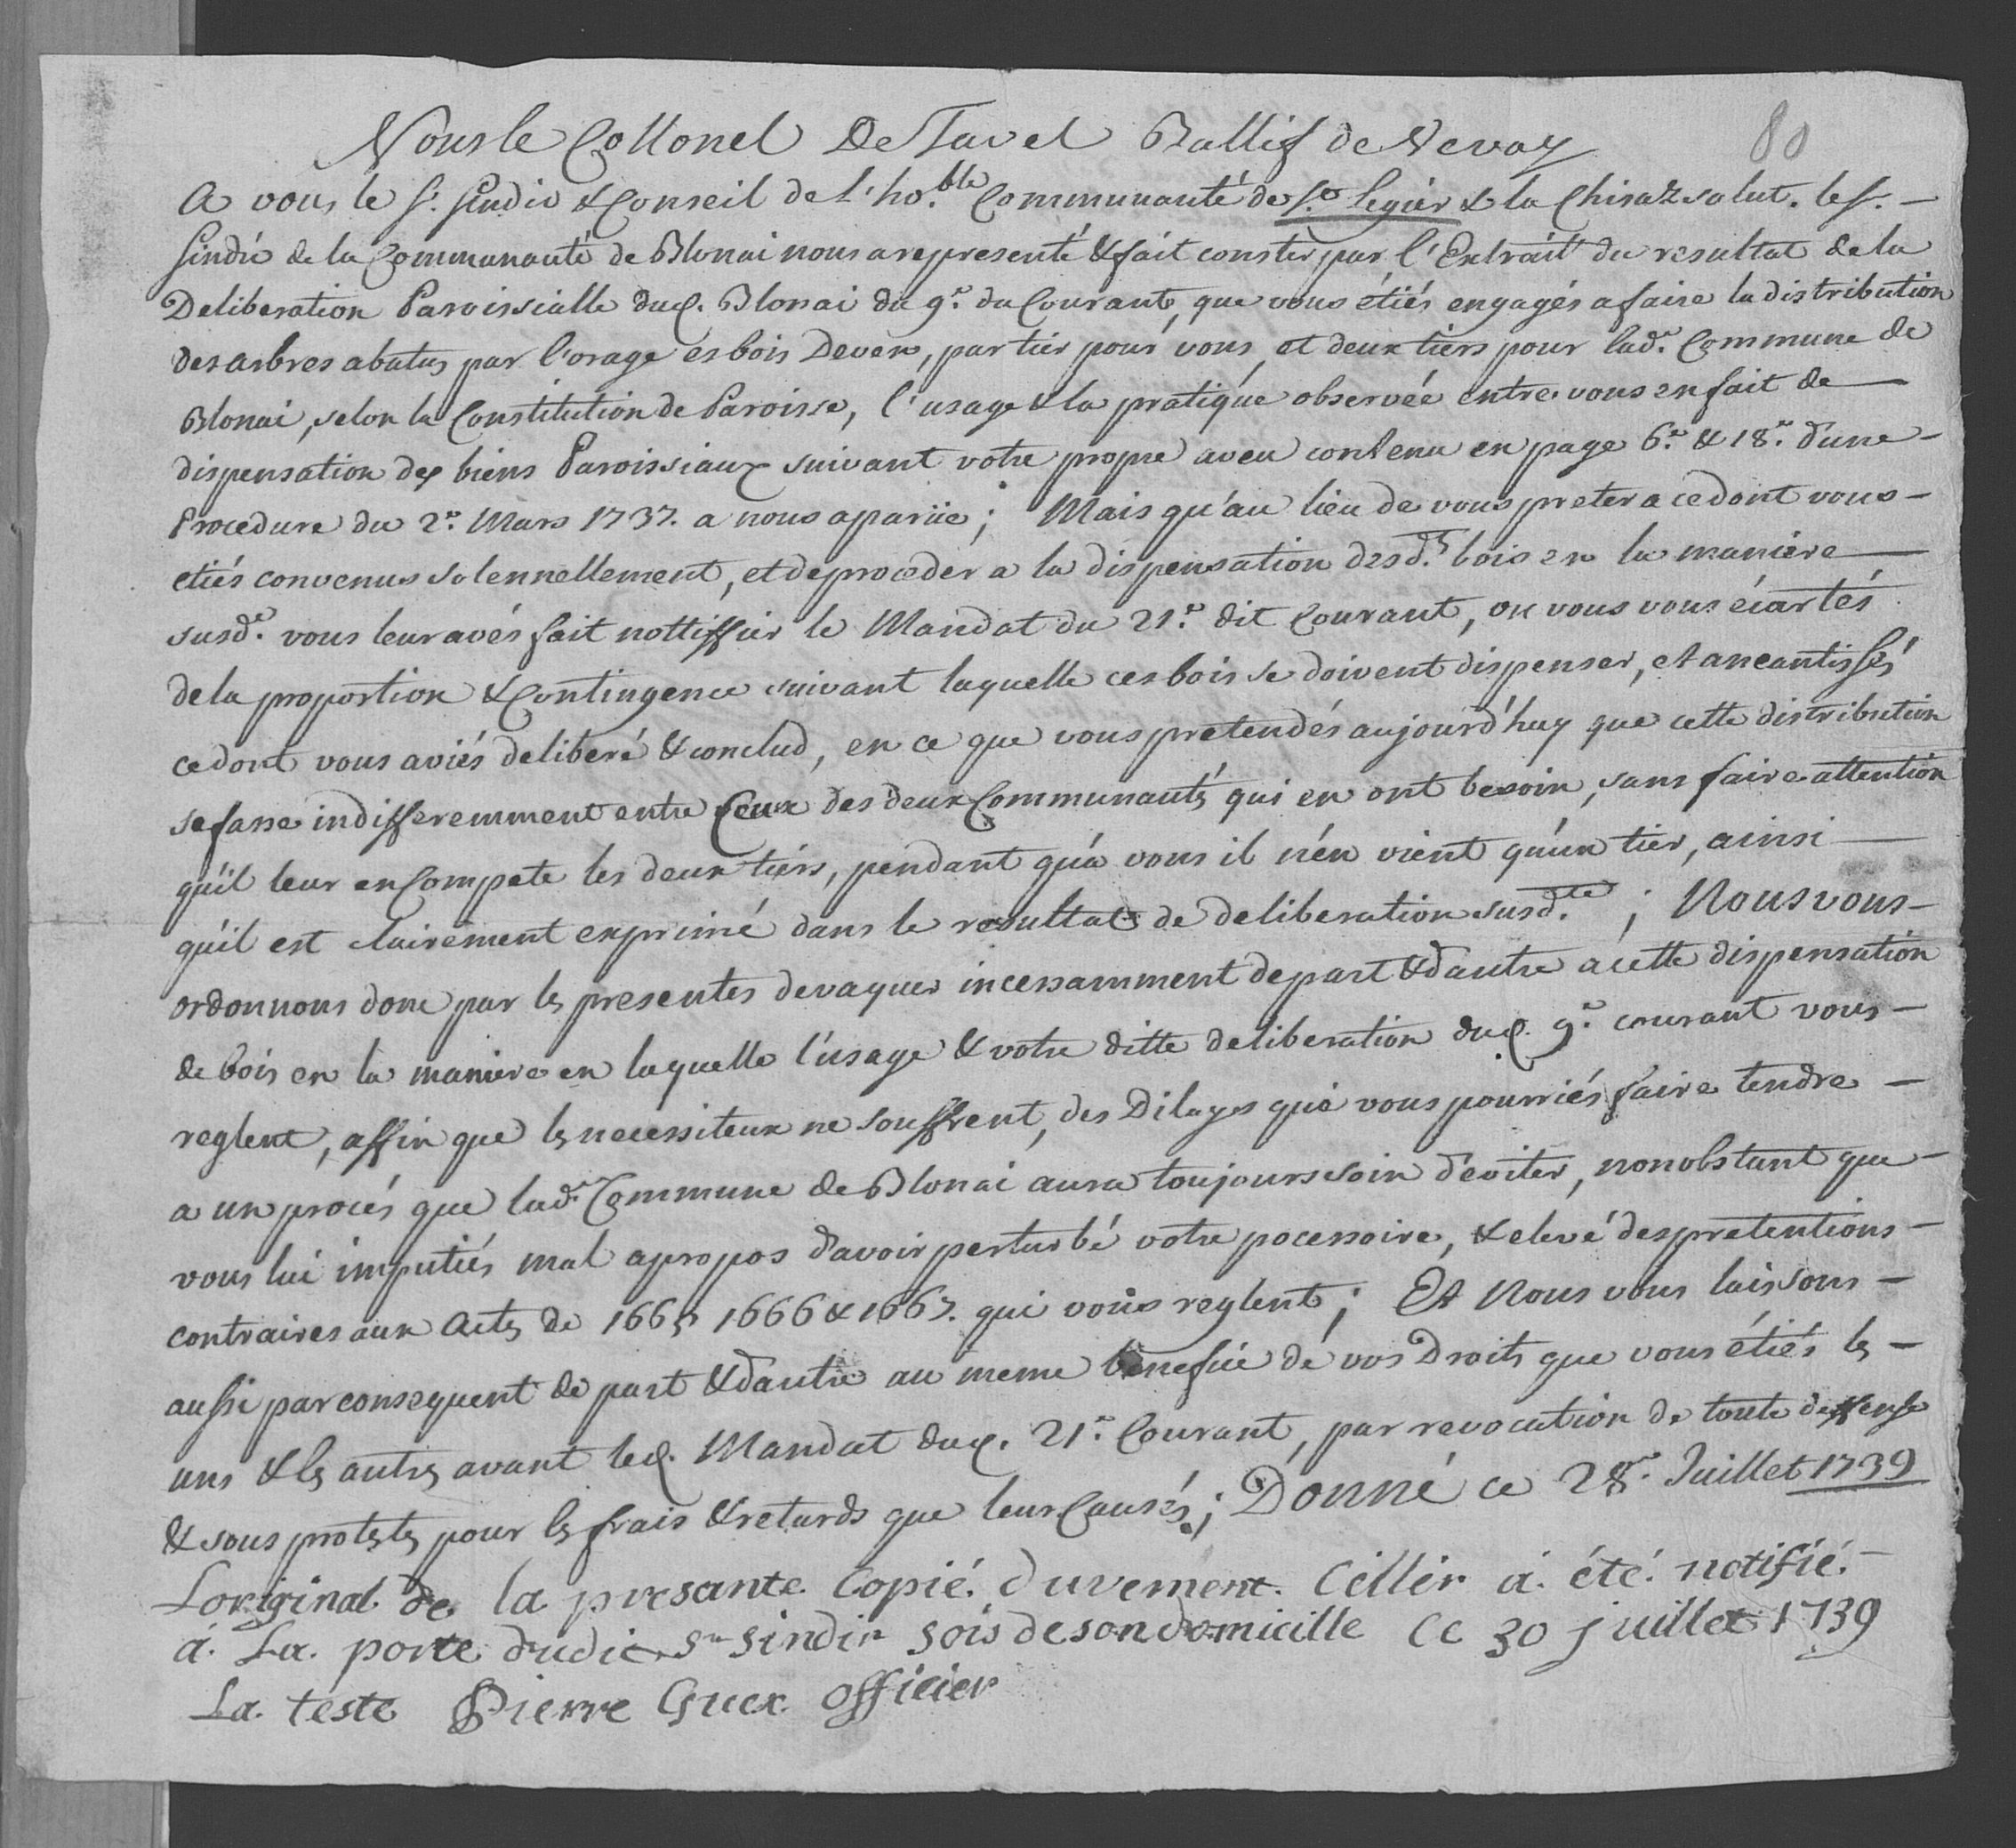 80
Nous le Collonel De Tavel Ballif de Vevay
A vous le Sr. Sindic & Conseil de l'ho.ble Communauté de St. Legier & la Chisaz salut. le Sr. -
Sindic de la Communauté de Blonai nous a representé & fait conster par l'Extrait du resultat de la
Deliberation Paroissialle dud. Blonai du 9.e du Courant, que vous étiés engagés a faire la distribution
des arbres abatus par l'orage es bois Deven, par tier pour vous, et deux tiers pour lad.e Commune de
Blonai, selon la Constitution de Paroisse, l'usage & la pratique observée entre vous en fait de -
dispensation des biens Paroissiaux suivant votre propre aveu contenu en page 6.e & 18.e d'une -
Procedure du 2.e Mars 1737. a nous apariie; Mais qu'au lieu de vous preter a ce dont vous -
etiés convenus solennellement, et de proceder a la dispensation desd.ts bois en la maniere -
susd.e vous leur avés fait nottiffier le Mandat du 21.e dit Courant, ou vous vous écartés
de la proportion & Contingence suivant laquelle ces bois se doivent dispenser, et aneantissés
ce dont vous aviés deliberé & conclud, en ce que vous pretendés aujourd'huy que cette distribution
se fasse indifferemment entre Ceux des deux Communautés qui en ont besoin, sans faire attention
qu'il leur en Compete les deux tiers, pendant qu'a vous il n'en vient qu'un tier, ainsi -
qu'il est clairement exprimé dans le resultat de deliberation susd.te; Nous vous -
ordonnons donc par les presentes de vaquer incessamment de part & d'autre a cette dispensation
de bois en la maniere en laquelle l'usage & votre ditte deliberation dud. 9.e courant vous -
reglent, affin que les necessiteux ne souffrent, des Dilayes que vous pourriés faire tendre -
a un procés que lad.e Commune de Blonai aura toujours soin d'eviter, nonobstant que -
vous lui imputiés mal apropos d'avoir perturbé votre pocessoire, & elevé des pretentions -
contraires aux Actes de 1665 1666 & 1667. qui vous reglent; Et Nous vous laissons -
aussi par consequent de part & d'autre au meme benefice de vos Droits que vous étiés les -
uns & les autres avant led. Mandat dud. 21.e Courant, par revocation de toute deffense
& sous protestes pour les frais & retards que leur Causés; Donné ce 28.e Juillet 1739
Loriginal de la presante Copié duvement Cellér a été notifié. -
a. La. porte dudit Sr Sindic sois de son domicille Ce 30 juillet 1739
La teste Pierre Guex officier